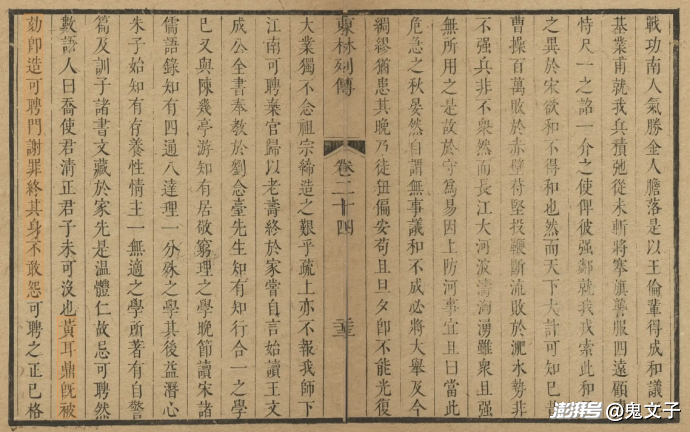 戰功南人氣勝金人膽落是以王倫輩得成和議
基業甫就我兵積弛從未斬將搴旗讋服四遠顧
恃尺一之詔一介之使俾彼强鄰就我戎索此和
之異於宋欲和不得和也然而天下大計可知已
曹操百萬敗於赤壁苻堅投鞭斷流敗於淝水勢非
不强兵非不衆然而長江大河波濤洶湧雖衆且强
無所用之是故於守爲易因上防河事宜且曰當此
危急之秋晏然自謂無事議和不成必將大舉及今
綢繆猶患其晚乃徒狃偏安苟且旦夕卽不能光復
東林列傳 卷二十四
大業獨不念祖宗締造之艱乎疏上亦不報我師下
江南可聘棄官歸以老壽終於家嘗自言始讀王文
成公全書奉教於劉念臺先生知有知行合一之學
已又與陳幾亭游知有居敬窮理之學晚節讀宋諸
儒語錄知有四通八達理一分殊之學其後益潛心
朱子始知有存養性情主一無適之學所著有自警
篇及訓子諸書文藏於家先是溫體仁故忌可聘然
數語人曰喬使君清正君子未可沒也黃耳鼎旣被
劾卽造可聘門謝罪終其身不敢怨可聘之正已格
澎湃号@鬼文子